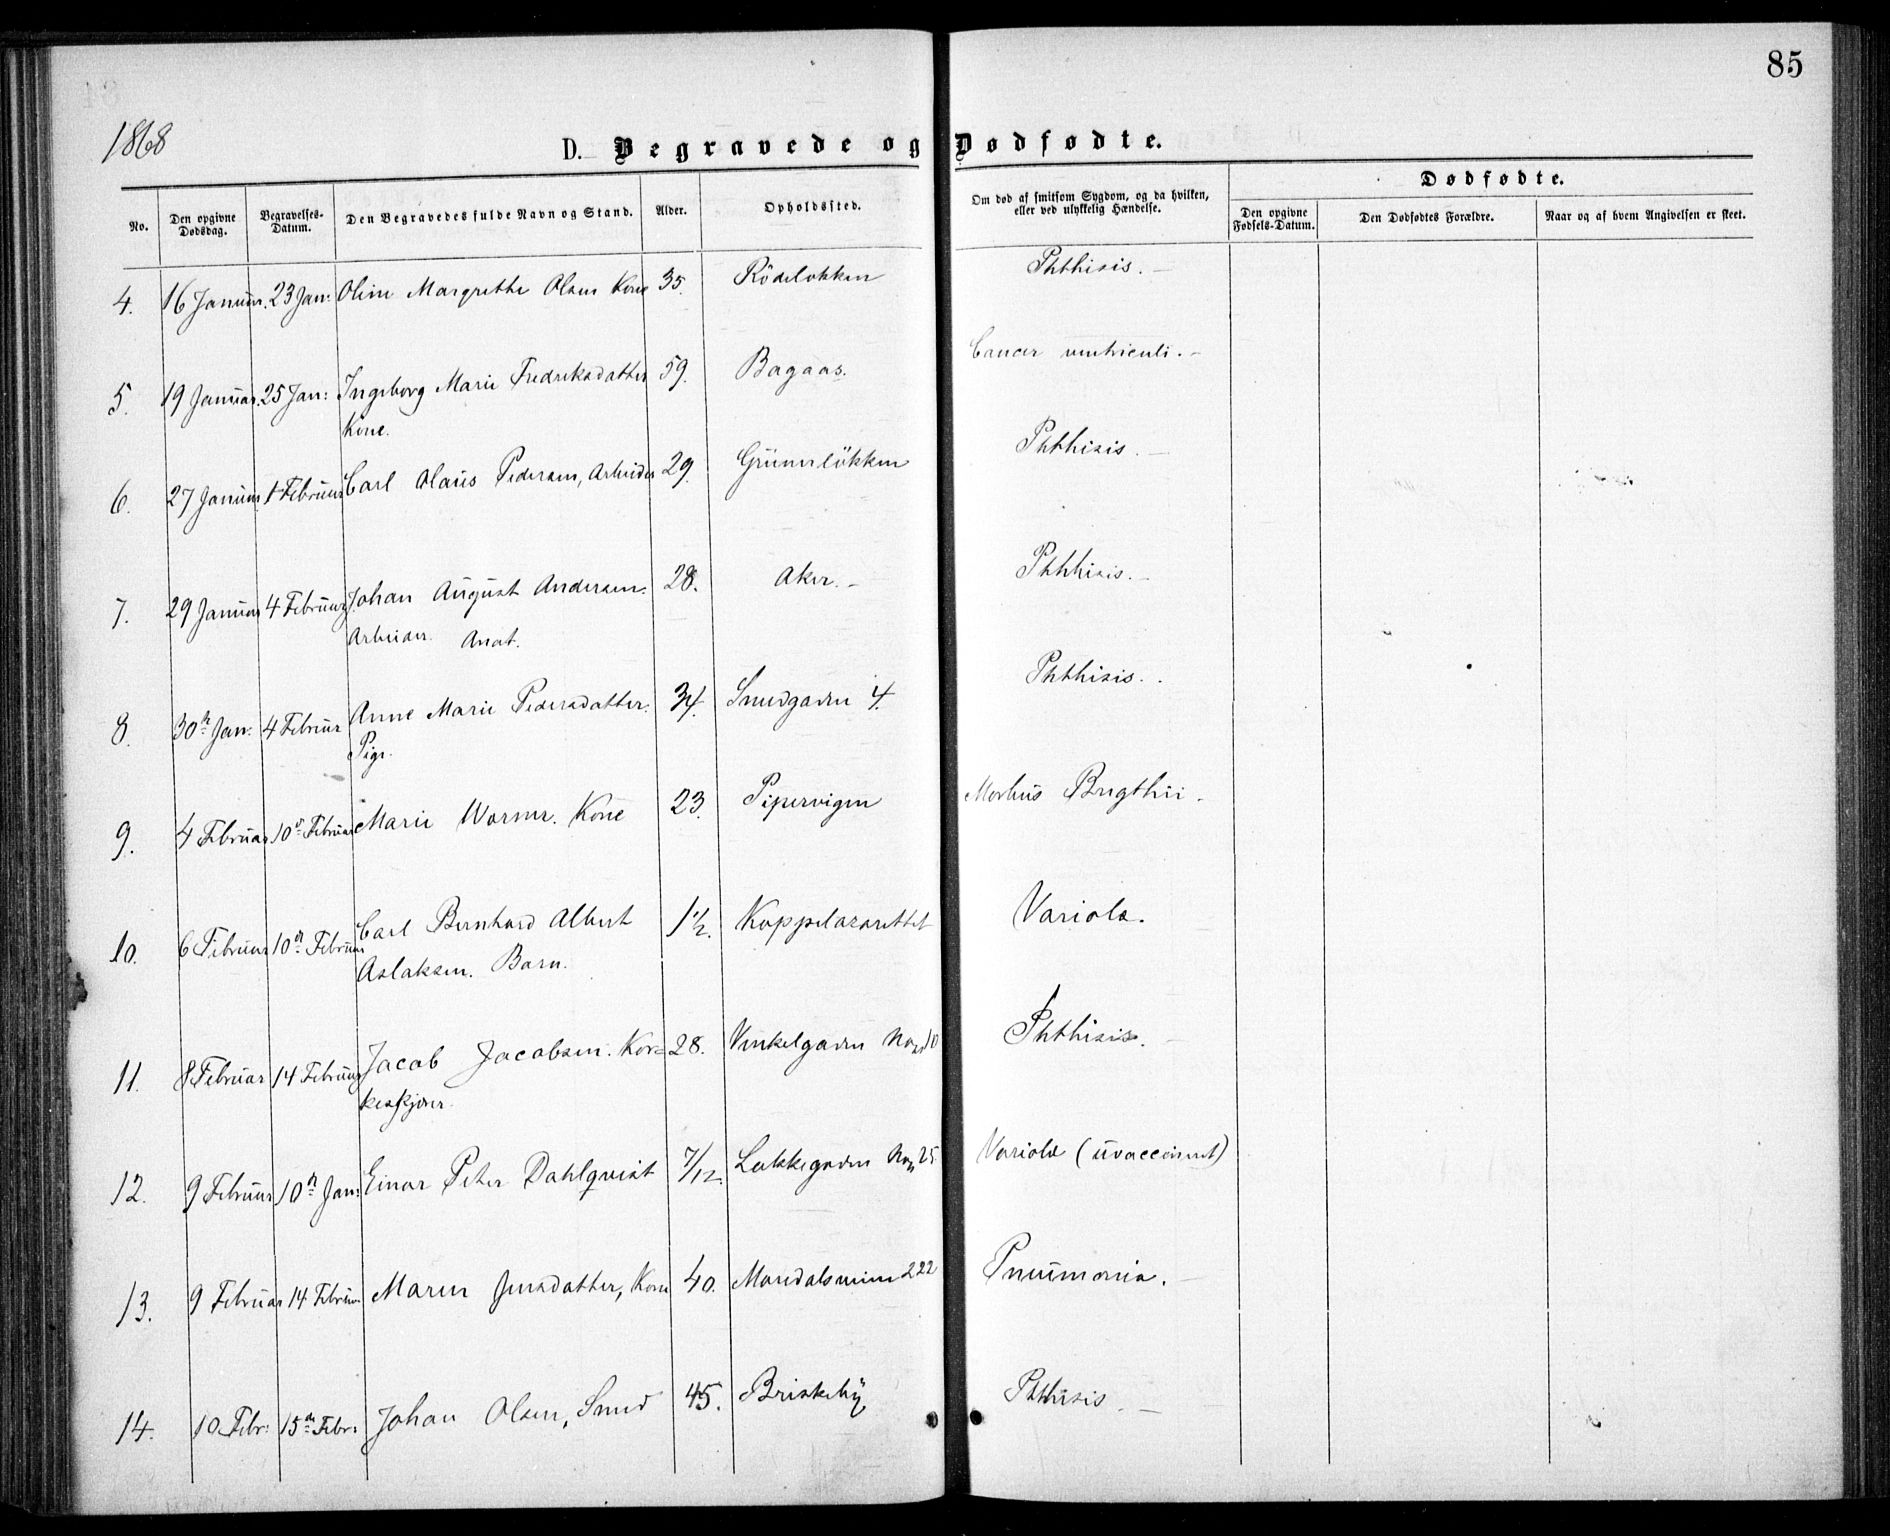 85
1868
D. Begravede og Dødfødte.
No. Den opgivne Dødsdag. Begravelses-Datum. Den Begravedes fulde Navn og Stand. Alder. Opholdssted. Om død af smitsom Sygdom, og da hvilken, eller ved ulykkelig Hændelse. Dødfødte.
Den opgivne Fødsels-Datum. Den Dødfødtes Forældre. Naar og af hvem Angivelsen er skeet.
4. 16 Januar. 23 Jan: Oline Margrethe Olsen Kone 35. Rödeløkken Phthisis. -
5. 19 Januar. 25 Jan: Ingeborg Marie Fredriksdatter 59. Bagaas. Cancer ventriculi. -
Kone.
6. 27 Januar 1 Februar Carl Olaus Pedersen, Arbeider 29. Grünerløkken Phthisis. -
7. 29 Januar 4 Februar Johan August Andersen. 28. Aker. - Phthisis. -
Arbeider. Anat.
8. 30te Jan. 4 Februar Anne Marie Pedersdatter. 34. Smedgaden 4. Phthisis. .
Pige.
9. 4 Februar 10de Februar Marie Worner. Kone 23. Pipervigen Morbus Brigthii. -
10. 6 Februar 10de Februar Carl Bernhard Albert 1½. Koppelazarettet Variola.
Aslaksen. Barn.
11. 8 Februar 14 Februar Jacob Jacobsen. Kor= 28. Vinkelgaden No 10 Phthisis. -
keskjærer.
12. 9 Februar 10de Jan: Einar Peter Dahlqvist 7/12. Lakkegaden No 25 Variola (uvaccineret)
13. 9 Februar 14 Februar Maren Jensdatter, Kone 40. Maridalsveien 222 Pneumonia. -
14. 10 Febr: 15de Febr: Johan Olsen, Smed 45. Briskeby Phthisis. -